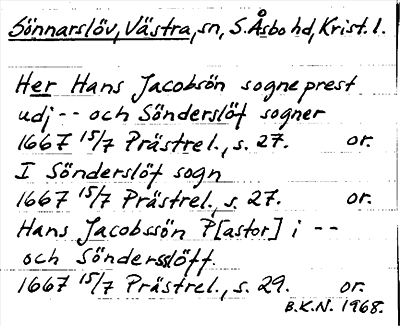 Sönnarslöv, Västra, sn, S. Åsbo hd, Krist. l.
Her Hans Jacobsön sogneprest
udj -- och Sönderslöf sogner
1667 15/7 Prästrel., s. 27. or.
I Sönderslöf sogn
1667 15/7 Prästrel., s. 27. or.
Hans Jacobssön P[astor] i --
och Söndersslöff.
1667 15/7 Prästrel., s. 29. or.
B.K.N. 1968.